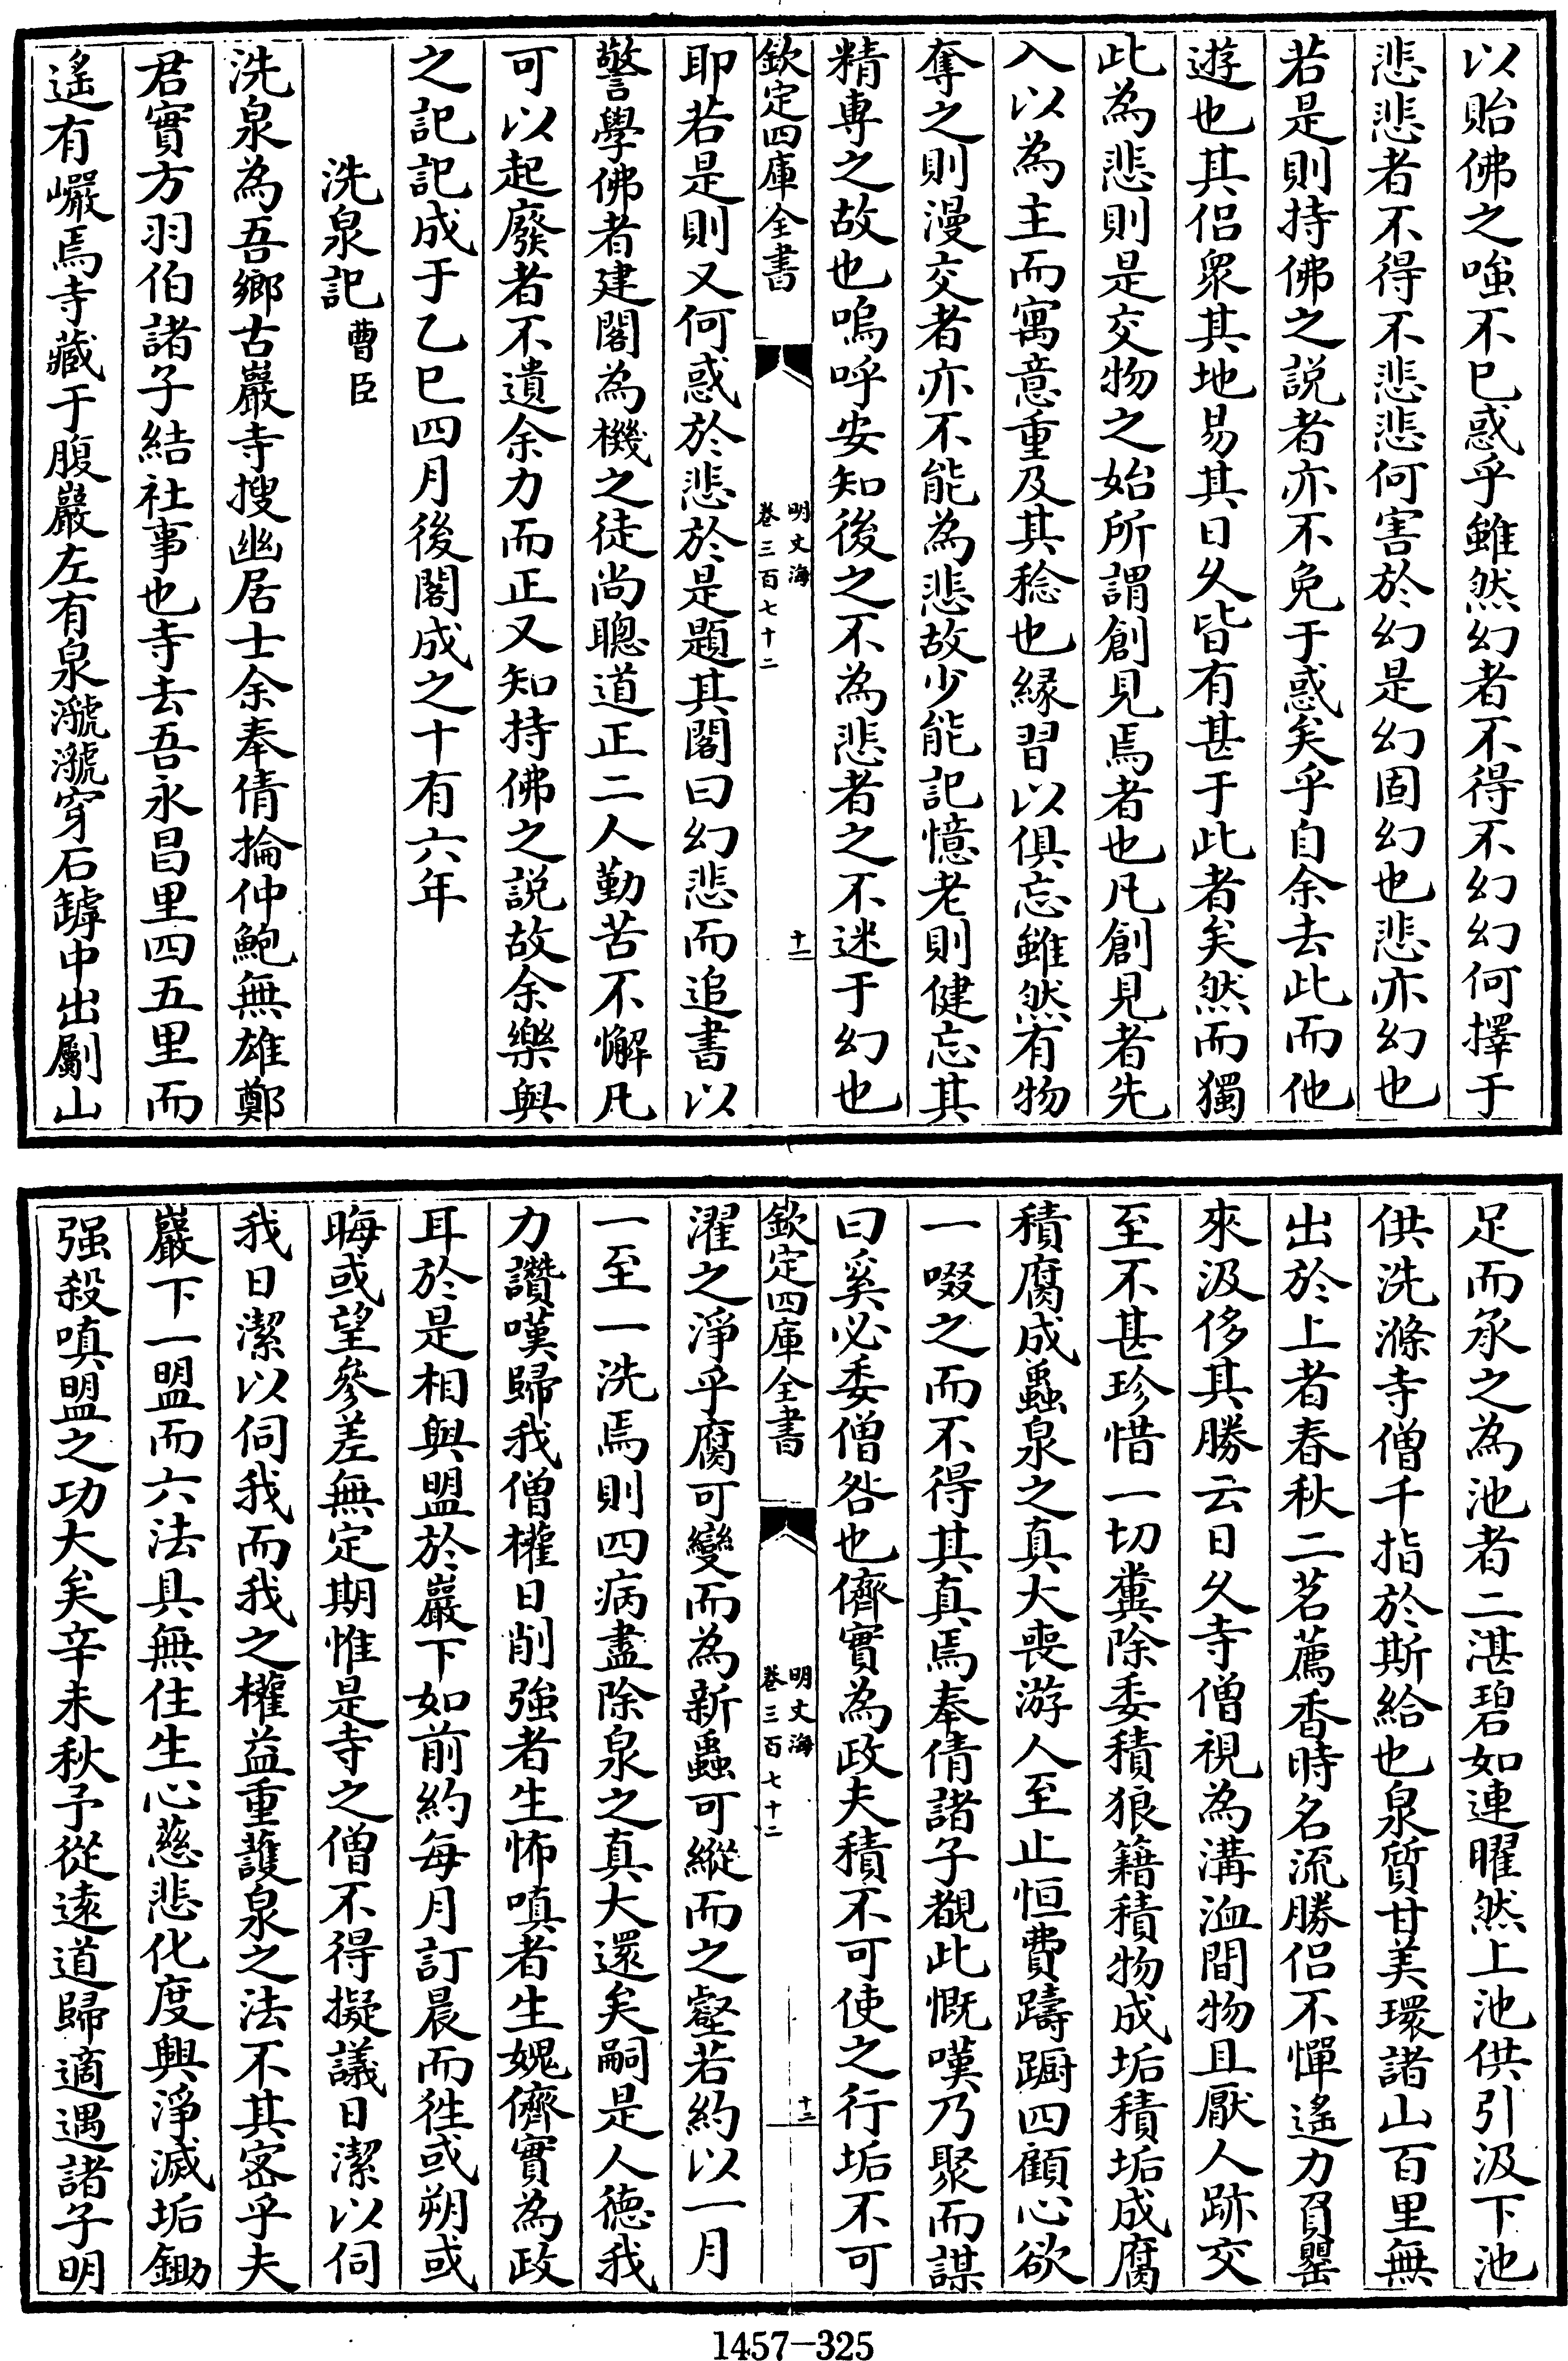 以貽佛之嗤不已惑乎雖然幻者不得不幻幻何擇于
悲悲者不得不悲悲何害於幻是幻固幻也悲亦幻也
若是則持佛之説者亦不免于惑矣乎自余去此而他
遊也其侣衆其地易其日久皆有甚于此者矣然而獨
此為悲則是交物之始所謂創見焉者也凡創見者先
入以為主而寓意重及其稔也縁習以俱忘雖然有物
奪之則漫交者亦不能為悲故少能記憶老則健忘其
精専之故也嗚呼安知後之不為悲者之不迷于幻也
欽定四庫全書
明文海
卷三百七十二
十一
耶若是則又何惑於悲於是題其閣曰幻悲而追書以
警學佛者建閣為機之徒尚聰道正二人勤苦不懈凡
可以起廢者不遺余力而正又知持佛之説故余樂與
之記記成于乙巳四月後閣成之十有六年
洗泉記 曹臣
洗泉為吾鄉古巖寺搜幽居士余奉倩掄仲鮑無雄鄭
君實方羽伯諸子結社事也寺去吾永昌里四五里而
遙有巗焉寺藏于腹巖左有泉㶁㶁穿石罅中出劚山
足而承之為池者二湛碧如連曜然上池供引汲下池
供洗滌寺僧千指於斯給也泉質甘美環諸山百里無
出於上者春秋二茗薦香時名流勝侣不憚遙力負罌
來汲侈其勝云日久寺僧視為溝洫間物且厭人跡交
至不甚珍惜一切糞除委積狼籍積物成垢積垢成腐
積腐成蟲泉之真大喪游人至止恒費躊躕四顧心欲
一啜之而不得其真焉奉倩諸子覩此慨嘆乃聚而謀
曰奚必委僧咎也儕實為政夫積不可使之行垢不可
欽定四庫全書
明文海
卷三百七十二
十二
濯之淨乎腐可變而為新蟲可縱而之壑若約以一月
一至一洗焉則四病盡除泉之真大還矣嗣是人德我
力讚嘆歸我僧權日削強者生怖嗔者生媿儕實為政
耳於是相與盟於巖下如前約每月訂晨而徃或朔或
晦或望參差無定期惟是寺之僧不得擬議日潔以伺
我日潔以伺我而我之權益重護泉之法不其密乎夫
巖下一盟而六法具無住生心慈悲化度興淨滅垢鋤
强殺嗔盟之功大矣辛未秋予從遠道歸適遇諸子明
1457-325